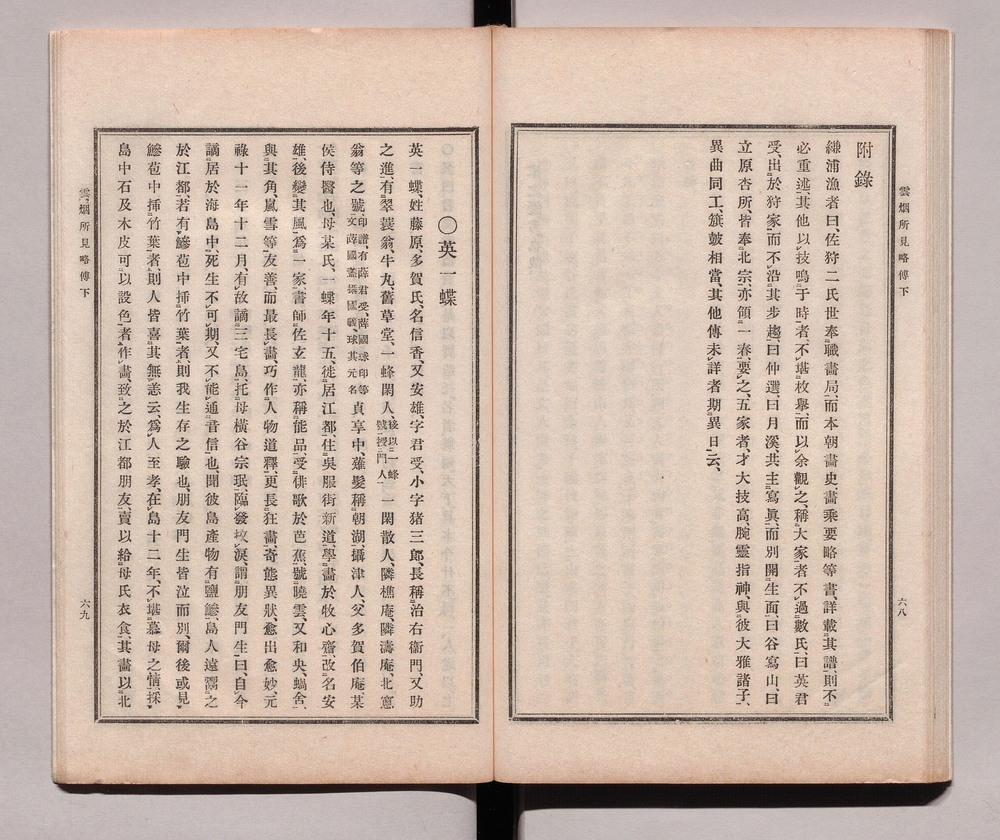 雲烟所見略傳下
六八
附錄
縴浦漁者曰、佐狩二氏世奉職畫局、而本朝畫史、畫乘要略等書、詳載其譜、則不
必重述、其他以技鳴于時者、不堪枚擧、而以余觀之、稱大家者不過數氏、曰英君
受、出於狩家而不沿其步趨、曰仲選、曰月溪、共主寫眞、而別開生面、曰谷寫山、曰
立原杏所、皆奉北宗、亦領一春、要之、五家者、才大技高、腕靈指神、與彼大雅諸子、
異曲同工、旗皷相當、其他傳未詳者、期異日云、
〇英一蝶
英一蝶、姓藤原、多賀氏、名信香、又安雄、字君受、小字猪三郎、長稱治右衞門、又助
之進、有翠蓑翁、牛丸、舊草堂、一蜂閑人、後以一蜂號授門人一閑散人、隣樵庵、隣濤庵、北窓
翁等之號、印譜、有薛君受、薛國球印等文、薛國球其元名貞享中、薙髮稱朝湖、攝津人、父多賀伯庵、某
侯侍醫也、母某氏、一蝶年十五、徙居江都、住吳服街新道、學畫於牧心齋、改名安
雄、後變其風、爲一家、書師佐玄龍、亦稱能品、受俳歌於芭蕉、號曉雲、又和央、蝸舍、
與其角、嵐雪等友善、而最長畫、巧作人物道釋、更長狂畫、奇態異狀、愈出愈妙、元
祿十一年十二月、有故謫三宅島、托母橫谷宗珉、臨發抆淚、謂朋友門生曰、自今
謫居於海島中、死生不可期、又不能通音信也、聞彼島產物有鹽鰺、島人遠鬻之
於江都、若有鰺苞中挿竹葉者、則我生存之驗也、朋友門生皆泣而別、爾後或見
鰺苞中挿竹葉者、則人皆喜其無恙云、爲人至孝、在島十二年、不堪慕母之情、採
島中石及木皮可以設色者、作畫、致之於江都朋友、賣以給母氏衣食、其畫以北
雲烟所見略傳下
六九